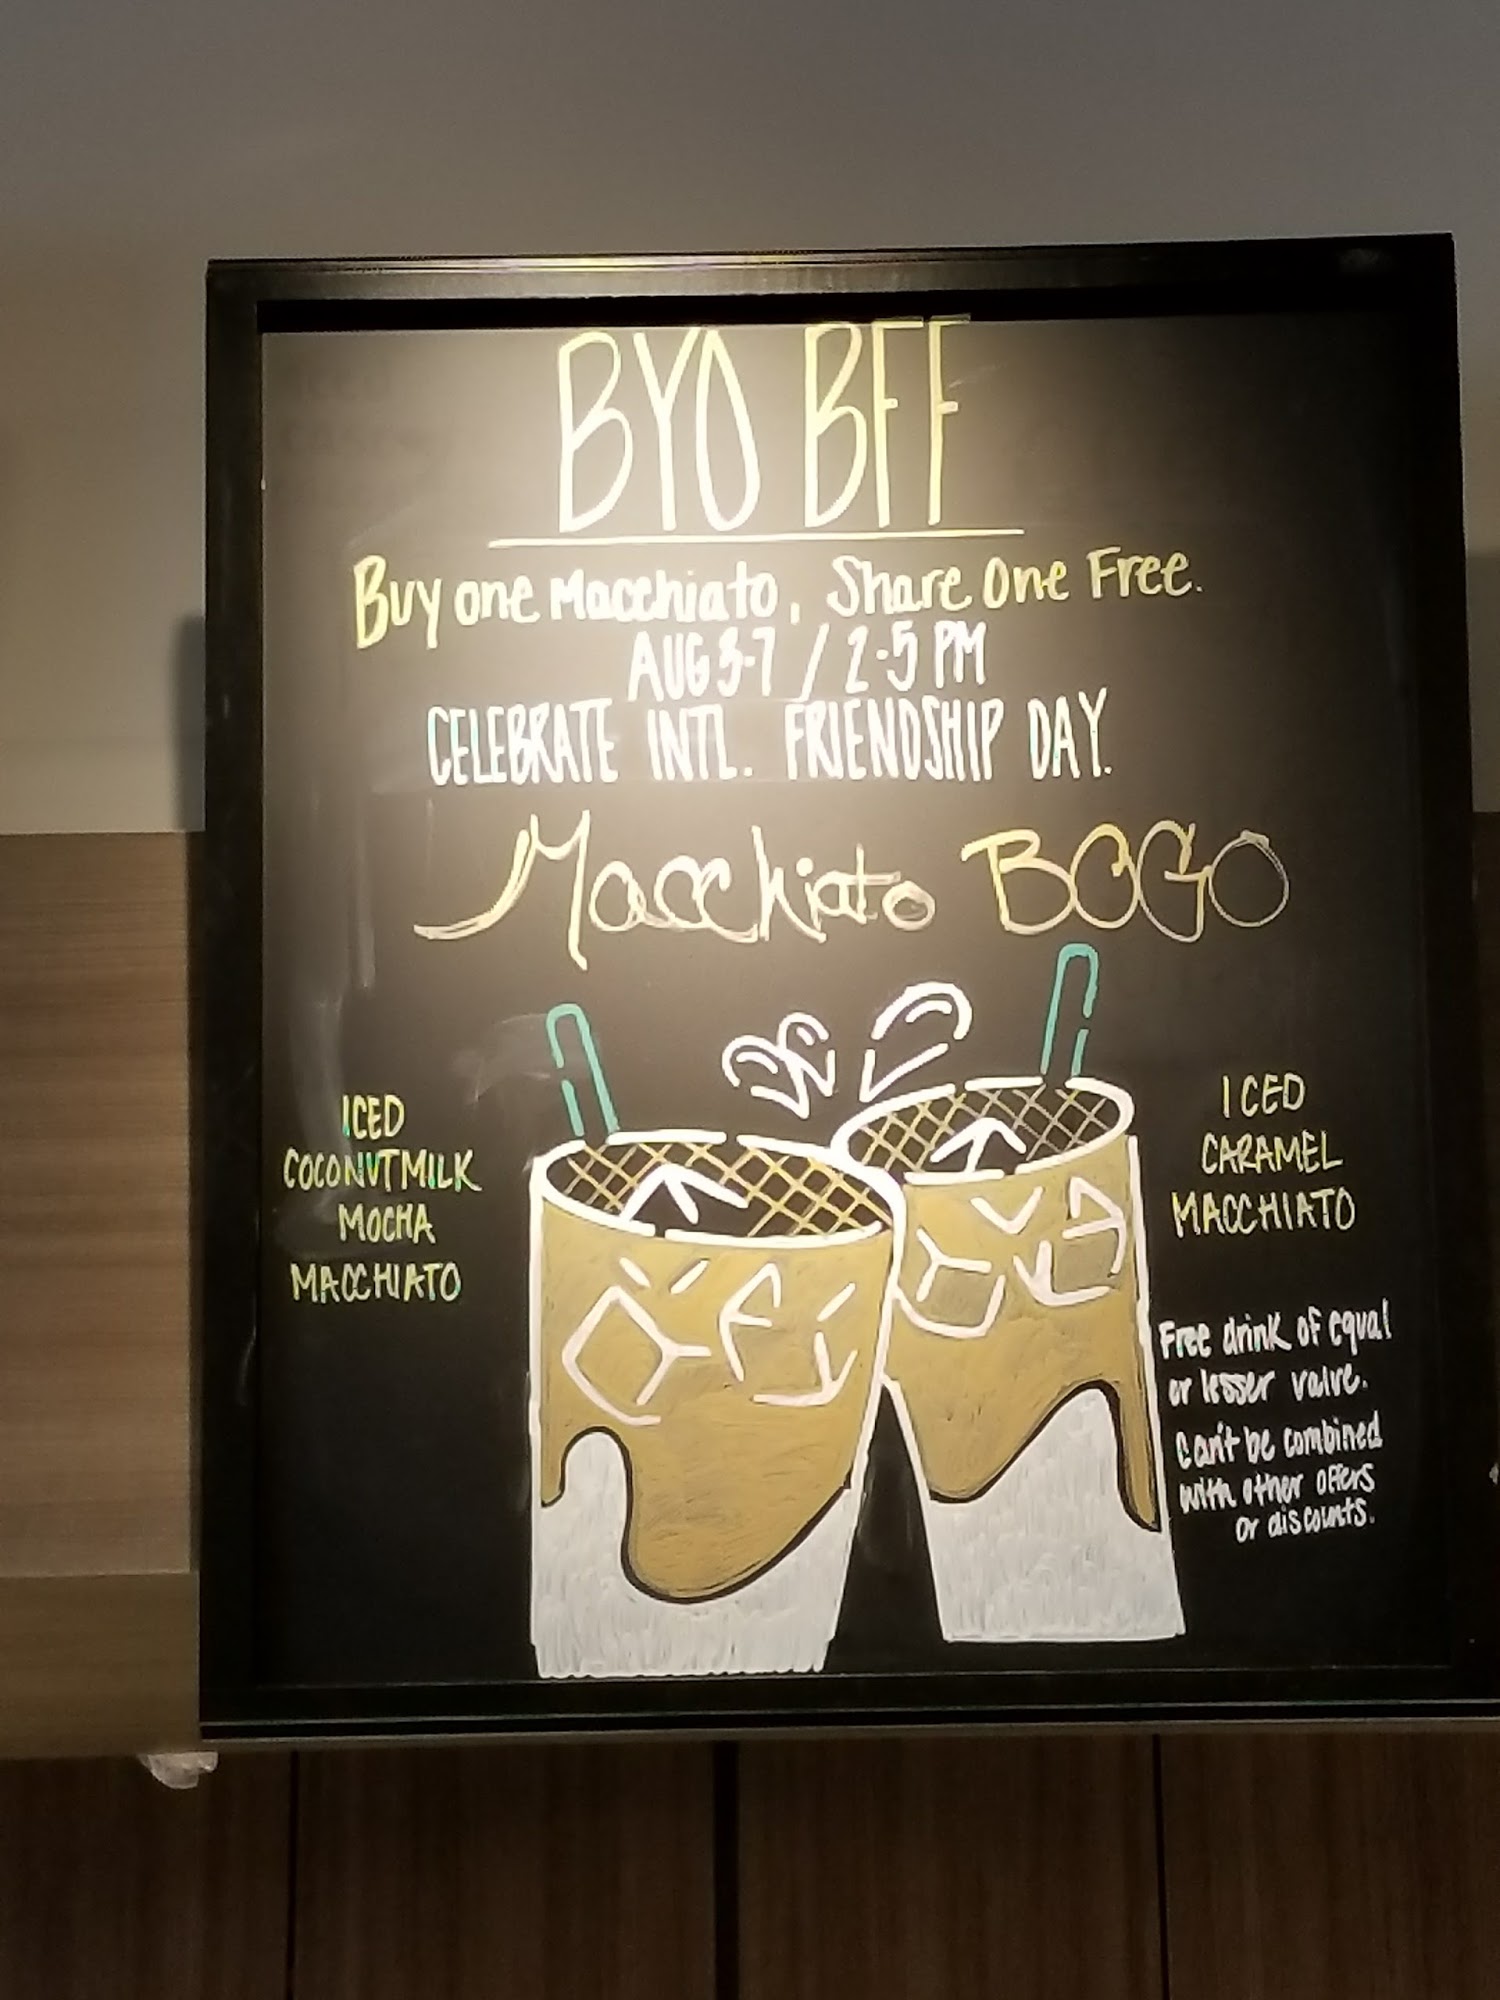 BYO BFF
Buy one Macchiato, Share One Free.
AUG 3-7 / 2-5 PM
CELEBRATE INTL. FRIENDSHIP DAY.
Macchiato BOGO
ICED
COCONUTMILK
MOCHA
MACCHIATO
ICED
CARAMEL
MACCHIATO
Free drink of equal
or lesser value.
Can't be combined
with other offers
or discounts.